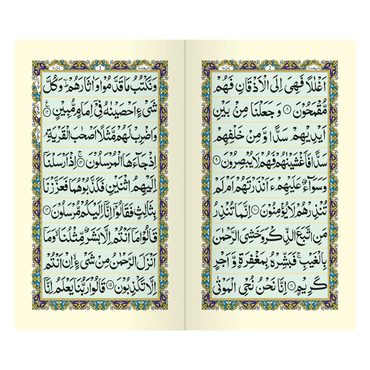 اَغۡلٰلًا فَهِىَ اِلَى الۡاَذۡقَانِ فَهُمۡ
مُّقۡمَحُوۡنَ ۞ وَجَعَلۡنَا مِنۡۢ بَيۡنِ
اَيۡدِيۡهِمۡ سَدًّا وَّمِنۡ خَلۡفِهِمۡ
سَدًّا فَاَغۡشَيۡنٰهُمۡ فَهُمۡ لَا يُبۡصِرُوۡنَ ۞
وَسَوَآءٌ عَلَيۡهِمۡ ءَاَنۡذَرۡتَهُمۡ اَمۡ لَمۡ
تُنۡذِرۡهُمۡ لَا يُؤۡمِنُوۡنَ ۞ اِنَّمَا تُنۡذِرُ
مَنِ اتَّبَعَ الذِّكۡرَ وَخَشِىَ الرَّحۡمٰنَ
بِالۡغَيۡبِۚ فَبَشِّرۡهُ بِمَغۡفِرَةٍ وَّاَجۡرٍ
كَرِيۡمٍ ۞ اِنَّا نَحۡنُ نُحۡىِ الۡمَوۡتٰى
وَنَكۡتُبُ مَا قَدَّمُوۡا وَاٰثَارَهُمۡؕ وَكُلَّ
شَىۡءٍ اَحۡصَيۡنٰهُ فِىۡۤ اِمَامٍ مُّبِيۡنٍ ۞
وَاضۡرِبۡ لَهُمۡ مَّثَلًا اَصۡحٰبَ الۡقَرۡيَةِۘ
اِذۡ جَآءَهَا الۡمُرۡسَلُوۡنَ ۞ اِذۡ اَرۡسَلۡنَاۤ
اِلَيۡهِمُ اثۡنَيۡنِ فَكَذَّبُوۡهُمَا فَعَزَّزۡنَا
بِثَالِثٍ فَقَالُوۡۤا اِنَّاۤ اِلَيۡكُمۡ مُّرۡسَلُوۡنَ ۞
قَالُوۡا مَاۤ اَنۡتُمۡ اِلَّا بَشَرٌ مِّثۡلُنَا ۙ وَمَاۤ
اَنۡزَلَ الرَّحۡمٰنُ مِنۡ شَىۡءٍ ۙ اِنۡ اَنۡتُمۡ
اِلَّا تَكۡذِبُوۡنَ ۞ قَالُوۡا رَبُّنَا يَعۡلَمُ اِنَّاۤ